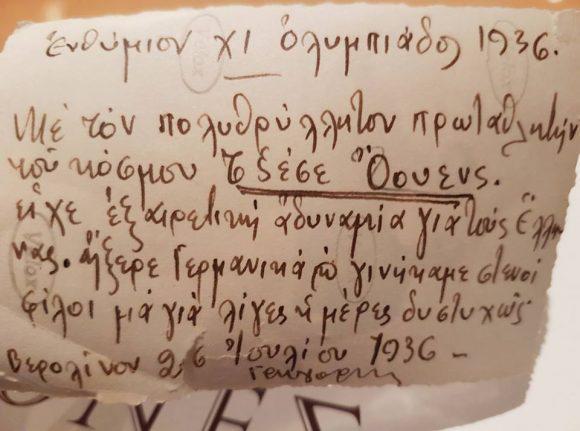 Ἐνθύμιον XI Ὀλυμπιάδος 1936.
Μὲ τὸν πολυθρύλλητον πρωταθλητὴν
τοῦ κόσμου Τζέσε Ὄουενς.
εἶχε ἐξαιρετικὴ ἀδυναμία γιὰ τοὺς Ἕλλη
νας. ἤξερε Γερμανικὰ γινήκαμε στενοὶ
φίλοι μὰ γιὰ λίγες ἡμέρες δυστυχῶς
Βερολίνον 26 Ἰουλίου 1936 –
Velox